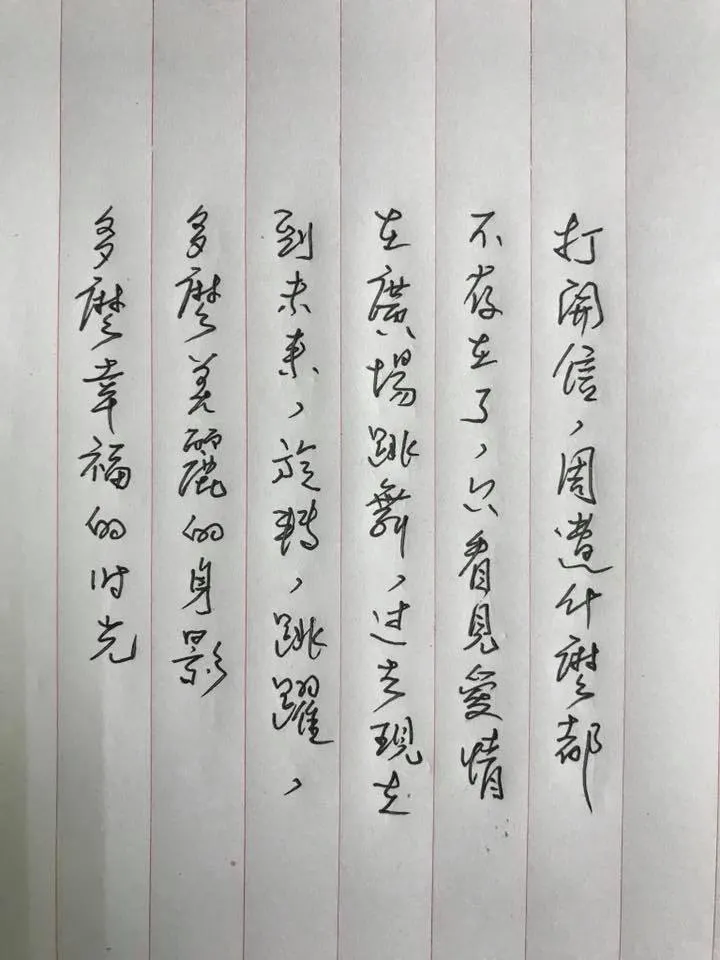 打開信，周遭什麼都
不存在了，只看見愛情
在廣場跳舞，过去現在
到未来，旋轉，跳躍，
多麼美麗的身影
多麼幸福的时光